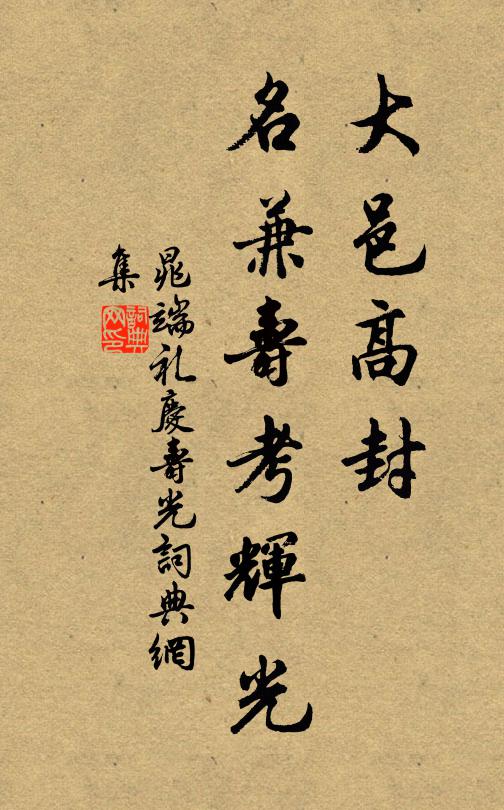 大邑高封
名兼壽考輝光
晁端礼慶壽光詞典網
集
詞典網印